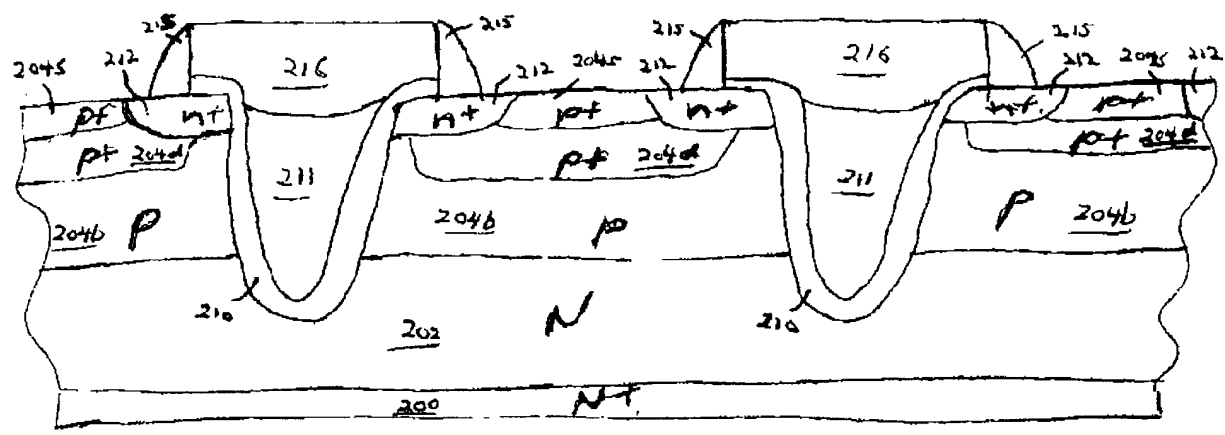 215 215 215 215
216 216
2045 212 212 2045 212 212 2045 212
p+ n+ n+ p+ n+ n+ p+
p+ 204d p+ 204d p+ 204d
211 211
204b P 204b P P 204b
210 210
202 N
200 N+